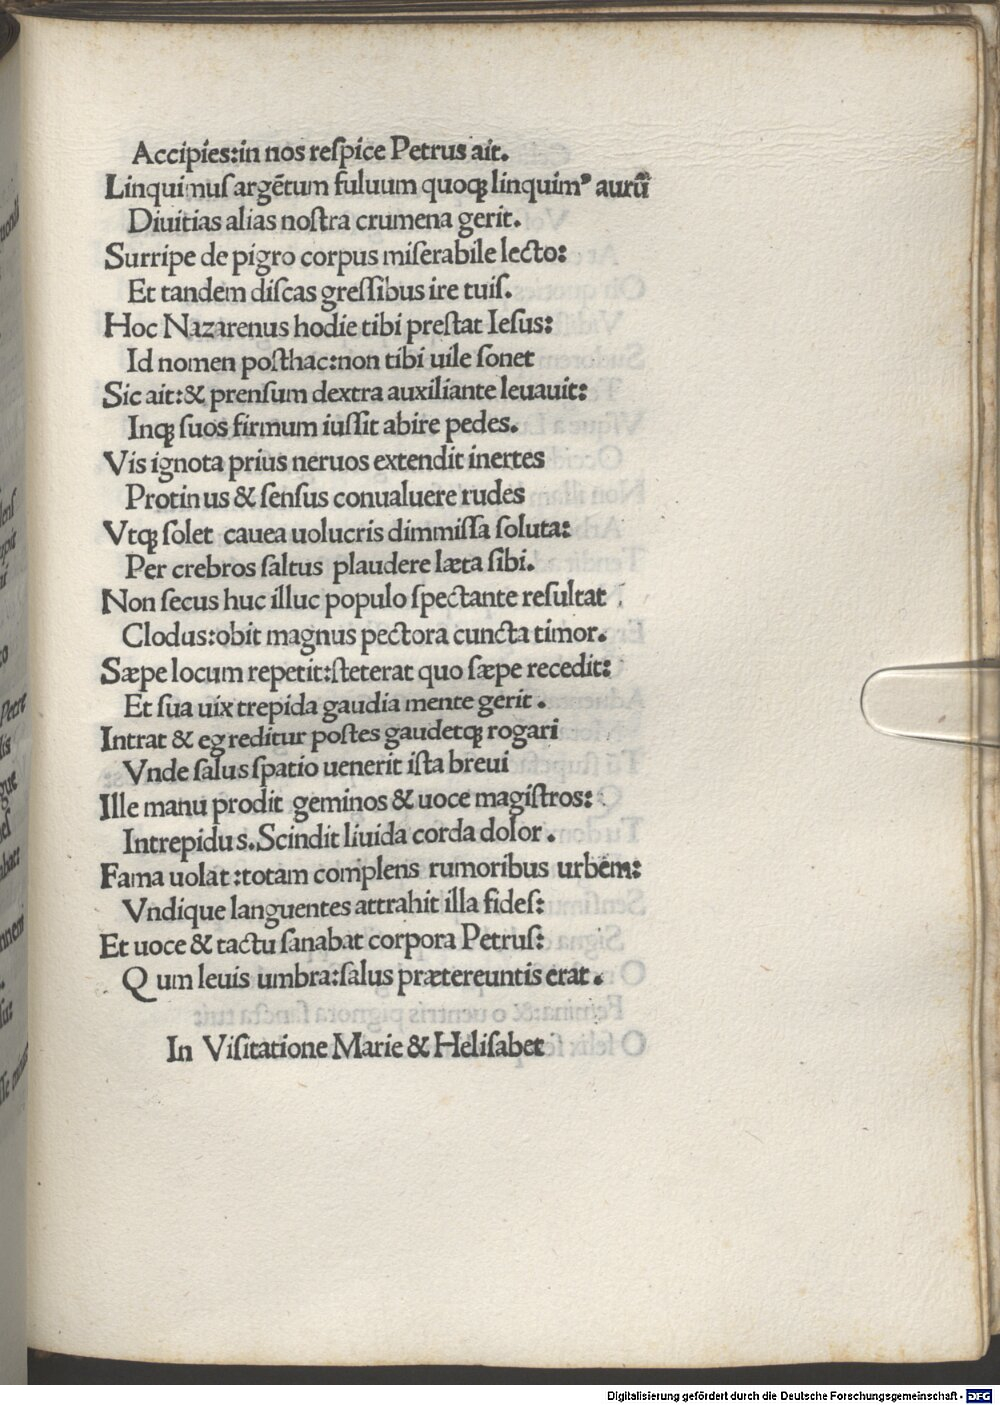 Accipies:in nos reſpice Petrus ait.
Linquimuſ argẽtum fuluum quoqꝫ linquimꝰ aurũ
Diuitias alias noſtra crumena gerit.
Surripe de pigro corpus miſerabile lecto:
Et tandem diſcas greſſibus ire tuiſ.
Hoc Nazarenus hodie tibi preſtat Ieſus:
Id nomen poſthac:non tibi uile ſonet
Sic ait:& prenſum dextra auxiliante leuauit:
Inqꝫ ſuos firmum iuſſit abire pedes.
Vis ignota prius neruos extendit inertes
Protinus & ſenſus conualuere rudes
Vtqꝫ ſolet cauea uolucris dimmiſſa ſoluta:
Per crebros ſaltus plaudere læta ſibi.
Non ſecus huc illuc populo ſpectante reſultat
Clodus:obit magnus pectora cuncta timor.
Sæpe locum repetit:ſteterat quo ſæpe recedit:
Et ſua uix trepida gaudia mente gerit.
Intrat & egreditur poſtes gaudetqꝫ rogari
Vnde ſalus ſpatio uenerit iſta breui
Ille manu prodit geminos & uoce magiſtros:
Intrepidus.Scindit liuida corda dolor.
Fama uolat:totam complens rumoribus urbem:
Vndique languentes attrahit illa fideſ:
Et uoce & tactu ſanabat corpora Petruſ:
Qum leuis umbra:ſalus prætereuntis erat.
In Viſitatione Marie & Heliſabet
Digitalisierung gefördert durch die Deutsche Forschungsgemeinschaft - DFG